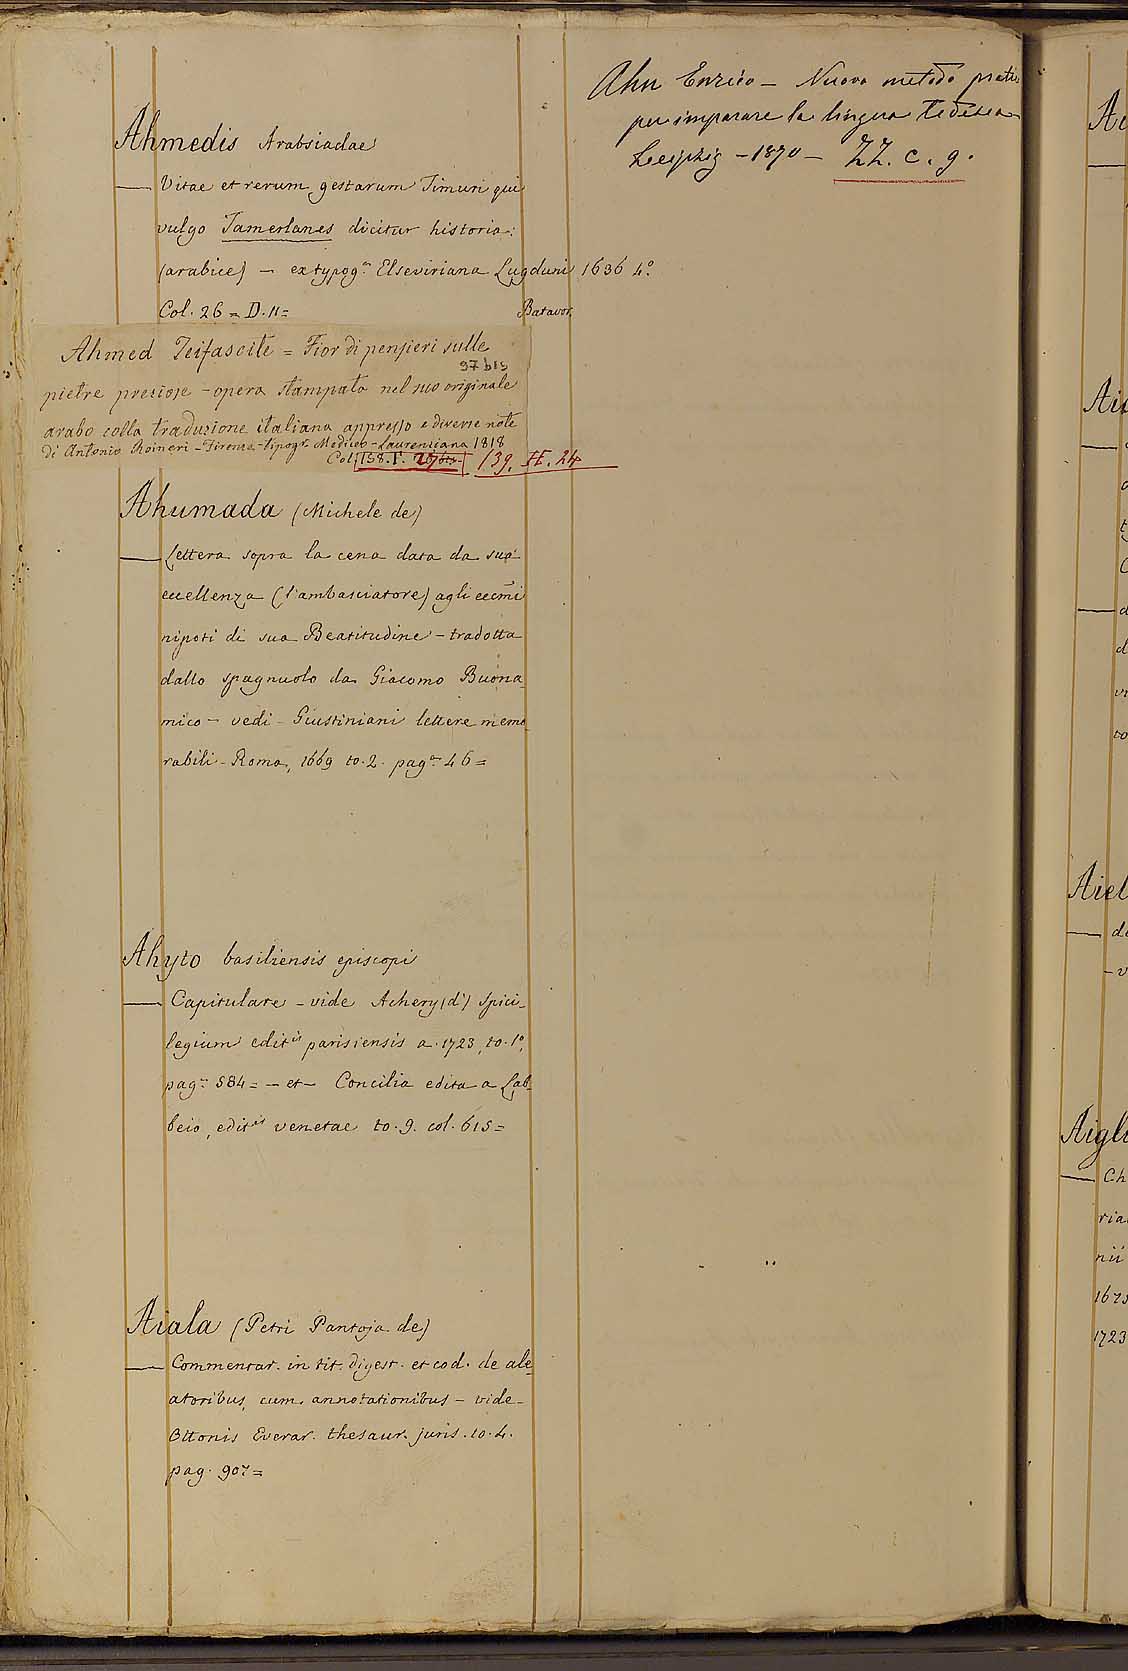 Ahmedis Arabsiadae
— Vitae et rerum gestarum Timuri qui
vulgo Tamerlanes dicitur historia:
(arabice) — ex typog.ª Elseviriana Lugduni 1636 4.º
Col. 26 = D. 11 =
Batavor.
Ahmed Teifascite = Fior di pensieri sulle
37 bis
pietre preziose - opera stampata nel suo originale
arabo colla traduzione italiana appresso e diverse note
di Antonio Raineri - Firenze - tipogr. Mediceo - Laurenziana 1818
Col. 158. F. 139. H. 24
Ahumada (Michele de)
— Lettera sopra la cena data da sua
eccellenza (l'ambasciatore) agli eccm̃i
nipoti di sua Beatitudine - tradotta
dallo spagnuolo da Giacomo Buona-
mico - vedi - Giustiniani lettere memo
rabili - Roma, 1669 to. 2. pag.ª 46 =
Ahyto basiliensis episcopi
— Capitulare - vide Achery (d') spici-
legium edit.is parisiensis a. 1723, to. 1.º,
pag.ª 584 = - et - Concilia edita a Lab-
beio, edit.is venetae to. 9. col. 615 =
Aiala (Petri Pantoja de)
— Commentar. in tit. digest. et cod. de ale-
atoribus, cum annotationibus - vide -
Ottonis Everar. thesaur. juris. to. 4.
pag. 907 =
Ahn Enrico — Nuovo metodo pratico
per imparare la lingua tedesca
Leipzig - 1870 - ZZ. c. g.
Aiel
Aigli
Ch
ria
nii
1675
1723